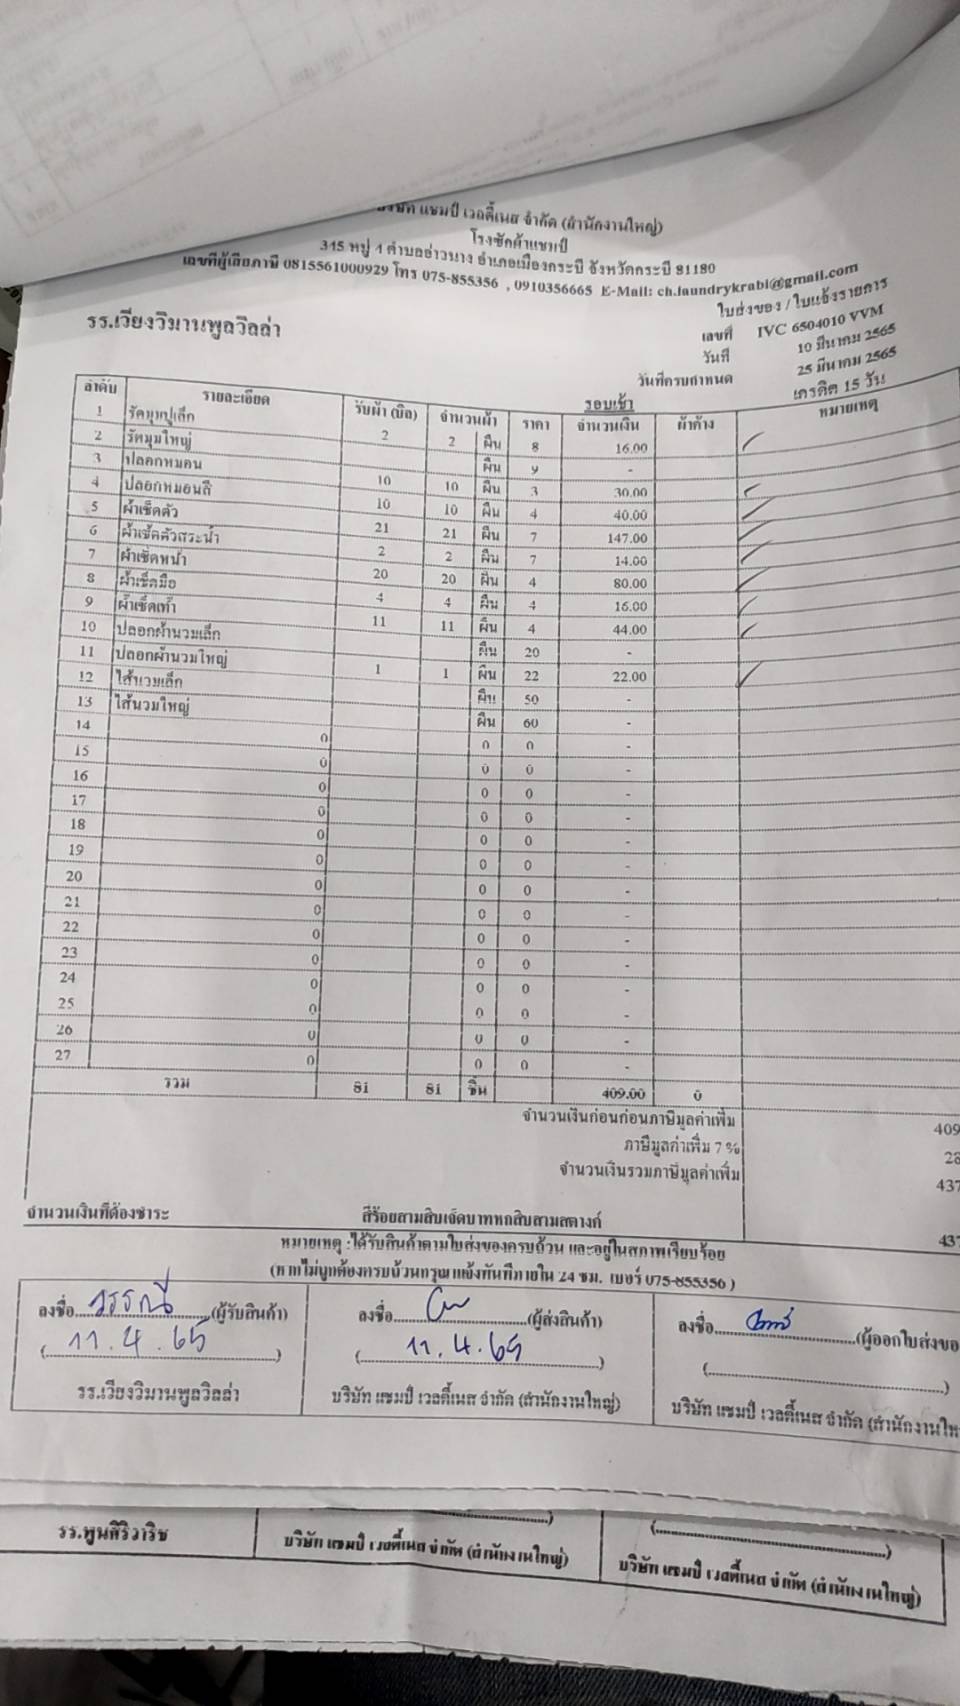 แชมป์ เวลตี้เนส จำกัด (สำนักงานใหญ่)
โรงซักผ้าแชมป์
345 หมู่ 4 ตำบลอ่าวนาง อำเภอเมืองกระบี่ จังหวัดกระบี่ 81180
เลขที่ผู้เสียภาษี 0815561000929 โทร 075-855356 , 0910356665 E-Mail: ch.laundrykrabi@gmail.com
ใบส่งของ / ใบแจ้งรายการ
รร.เวียงวิมานพูลวิลล่า
เลขที่ IVC 6504010 VVM
วันที่ 10 มีนาคม 2565
วันที่ครบกำหนด 25 มีนาคม 2565
รอบเช้า เครดิต 15 วัน
ลำดับ รายละเอียด รับผ้า (บิล) จำนวนผ้า ราคา จำนวนเงิน ผ้าค้าง หมายเหตุ
1 รัดมุมปูเล็ก 2 2 ผืน 8 16.00
2 รัดมุมใหญ่ ผืน 9 -
3 ปลอกหมอน 10 10 ผืน 3 30.00
4 ปลอกหมอนสี 10 10 ผืน 4 40.00
5 ผ้าเช็ดตัว 21 21 ผืน 7 147.00
6 ผ้าเช็ดตัวสระน้ำ 2 2 ผืน 7 14.00
7 ผ้าเช็ดหน้า 20 20 ผืน 4 80.00
8 ผ้าเช็ดมือ 4 4 ผืน 4 16.00
9 ผ้าเช็ดเท้า 11 11 ผืน 4 44.00
10 ปลอกผ้านวมเล็ก ผืน 20 -
11 ปลอกผ้านวมใหญ่ 1 1 ผืน 22 22.00
12 ไส้นวมเล็ก ผืน 50 -
13 ไส้นวมใหญ่ ผืน 60 -
14 0 0 0 -
15 0 0 0 -
16 0 0 0 -
17 0 0 0 -
18 0 0 0 -
19 0 0 0 -
20 0 0 0 -
21 0 0 0 -
22 0 0 0 -
23 0 0 0 -
24 0 0 0 -
25 0 0 0 -
26 0 0 0 -
27 0 0 0 -
รวม 81 81 ชิ้น 409.00 0
จำนวนเงินก่อนก่อนภาษีมูลค่าเพิ่ม 409
ภาษีมูลค่าเพิ่ม 7 % 28
จำนวนเงินรวมภาษีมูลค่าเพิ่ม 437
จำนวนเงินที่ต้องชำระ สี่ร้อยสามสิบเจ็ดบาทหกสิบสามสตางค์ 437
หมายเหตุ :ได้รับสินค้าตามใบส่งของครบถ้วน และอยู่ในสภาพเรียบร้อย
(หากไม่ถูกต้องครบถ้วนกรุณาแจ้งทันทีภายใน 24 ชม. เบอร์ 075-855356 )
ลงชื่อ วรรณี (ผู้รับสินค้า) ลงชื่อ (ผู้ส่งสินค้า) ลงชื่อ (ผู้ออกใบส่งขอ
( 11.4.65 ) ( 11.4.65 ) ( )
รร.เวียงวิมานพูลวิลล่า บริษัท แชมป์ เวลตี้เนส จำกัด (สำนักงานใหญ่) บริษัท แชมป์ เวลตี้เนส จำกัด (สำนักงานให
รร.พูนศิริวาริช บริษัท แชมป์ เวลตี้เนส จำกัด (สำนักงานใหญ่) บริษัท แชมป์ เวลตี้เนส จำกัด (สำนักงานใหญ่)